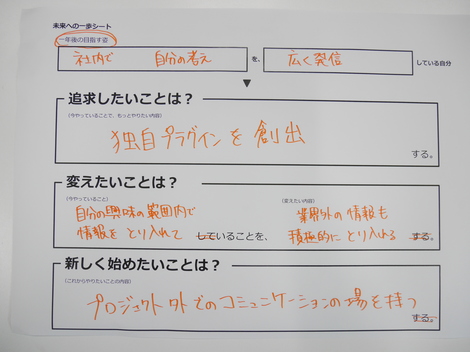 未来への一歩シート
一年後の目指す姿
社内で 自分の考え を、 広く発信 している自分
▼
追求したいことは？
（今やっていることで、もっとやりたい内容）
独自プラグインを創出 する。
変えたいことは？
（今やっていること） （変えたい内容）
自分の興味の範囲内で 業界外の情報も
情報をとり入れて していることを、 積極的にとり入れる する。
新しく始めたいことは？
（これからやりたいことの内容）
プロジェクト外でのコミュニケーションの場を持つ する。